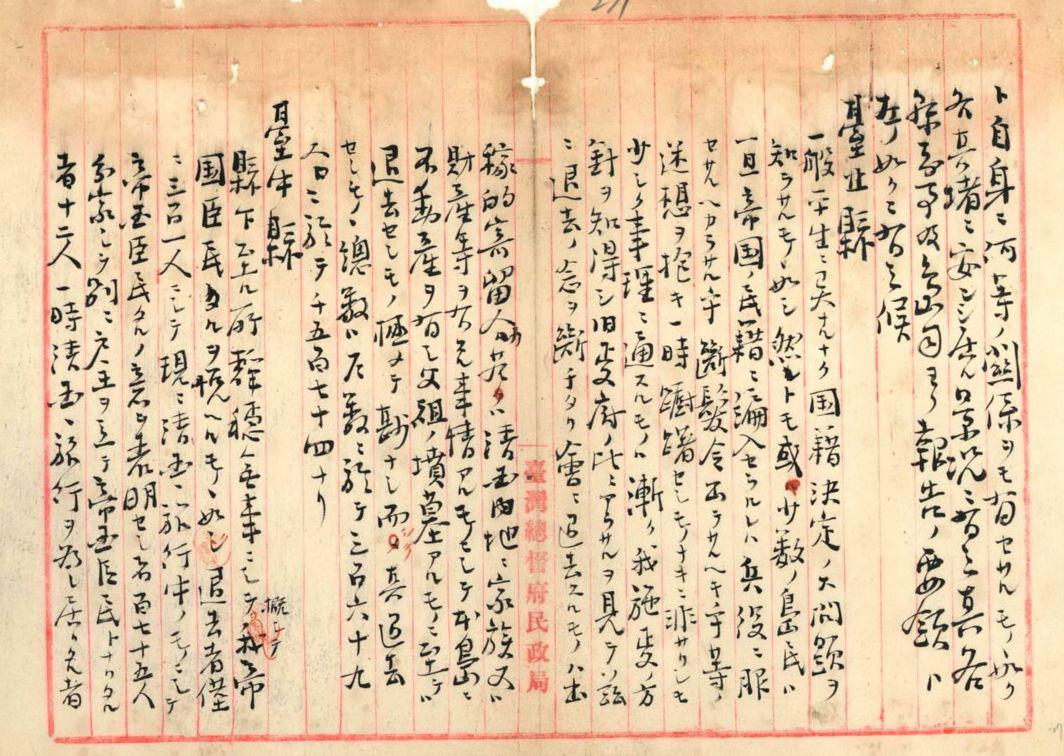 ト自身ニ何等ノ関係ヲモ有セサルモノヽ如ク
各其堵ニ安ンシ居ル景況ニ有之其各
縣知事及島司ヨリ報告ノ要領ハ
左ノ如クニ有之候
臺北縣
一般平生ニ異ナルナク国籍決定ノ大問題ヲ
知ラサルモノヽ如シ然レトモ或ハ少数ノ島民ハ
一旦帝国ノ民籍ニ編入セラルレハ兵役ニ服
セサルヘカラサル乎断髪令出ラサルヘキ乎等ノ
迷想ヲ抱キ一時躊躇セシモノナキニ非サリシモ
少シク事理ニ通スルモノハ漸ク我施政ノ方
針ヲ知得シ旧政府ノ比ニアラサルヲ見テ茲
ニ退去ノ念ヲ断チタリ會ニ退去スルモノハ出
稼的寄留人若クハ清国内地ニ家族又ハ
財産等ヲ有シ事情アルモノニシテ本島ニ
不動産ヲ有シ父祖ノ墳墓アルモノニ至テハ
退去セシモノ極メテ尠ナシ而シテ其退去
セシモノ総数ハ戸数ニ於テ三百六十九
人口ニ於テ千五百七十四ナリ
臺中縣
縣下至ル所静穏無事ニシテ概シテ我帝
国臣民タルヲ悦ヘルモノヽ如シ退去者僅
ニ三百一人ニシテ現ニ清国ニ旅行中ノモノニシテ
帝国臣民タルノ意ヲ表明セシ者百七十五人
分家シテ別ニ戸主ヲ立テ帝国臣民トナリタル
者十二人一時清国ヘ旅行ヲ為シ居タル者
臺灣總督府民政局